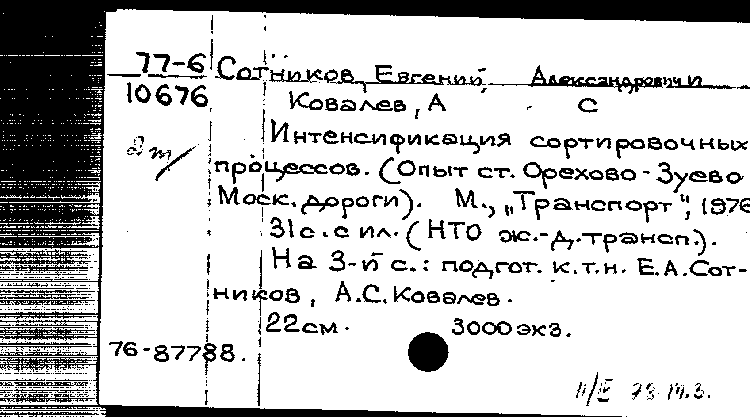 77-6 Сотников, Евгений Александрович и
10676 Ковалев, А С
Интенсификация сортировочных
2т/ процессов. (Опыт ст. Орехово-Зуево
Моск. дороги). М., "Транспорт", 1976
31с. с ил. (НТО ж.-д. трансп.).
На 3-й с.: подгот. к.т.н. Е.А.Сот-
ников, А.С.Ковалев.
22см. 3000экз.
76-87788.